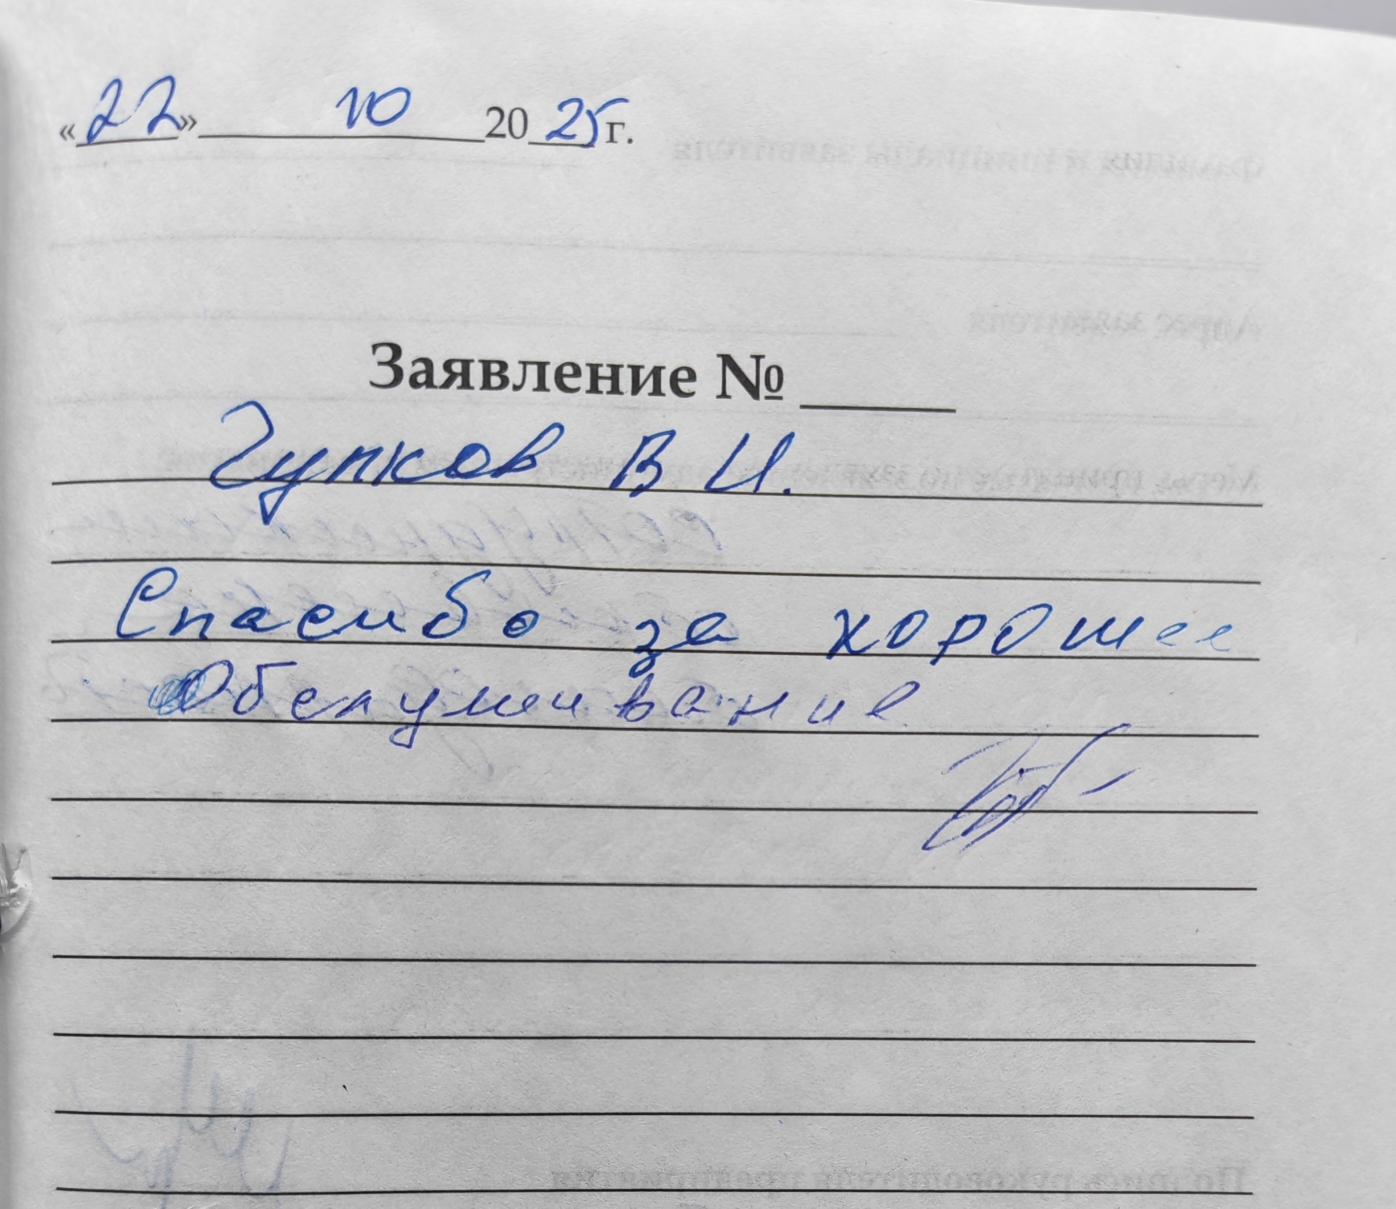 «22» 10 2025г.
Заявление № ____
Чупков В И.
Спасибо за хорошее
Обслуживание